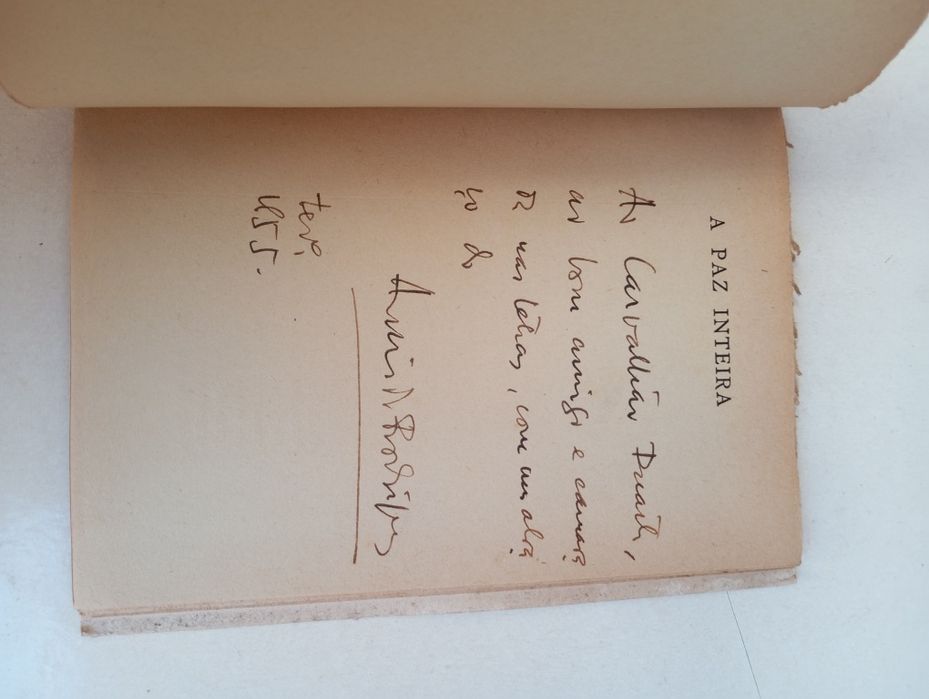 A PAZ INTEIRA
Ao Carvalhão Duarte,
ao bom amigo e camara
da nas letras, com um abra
ço do
Assis Rodrigues
fev.
955.